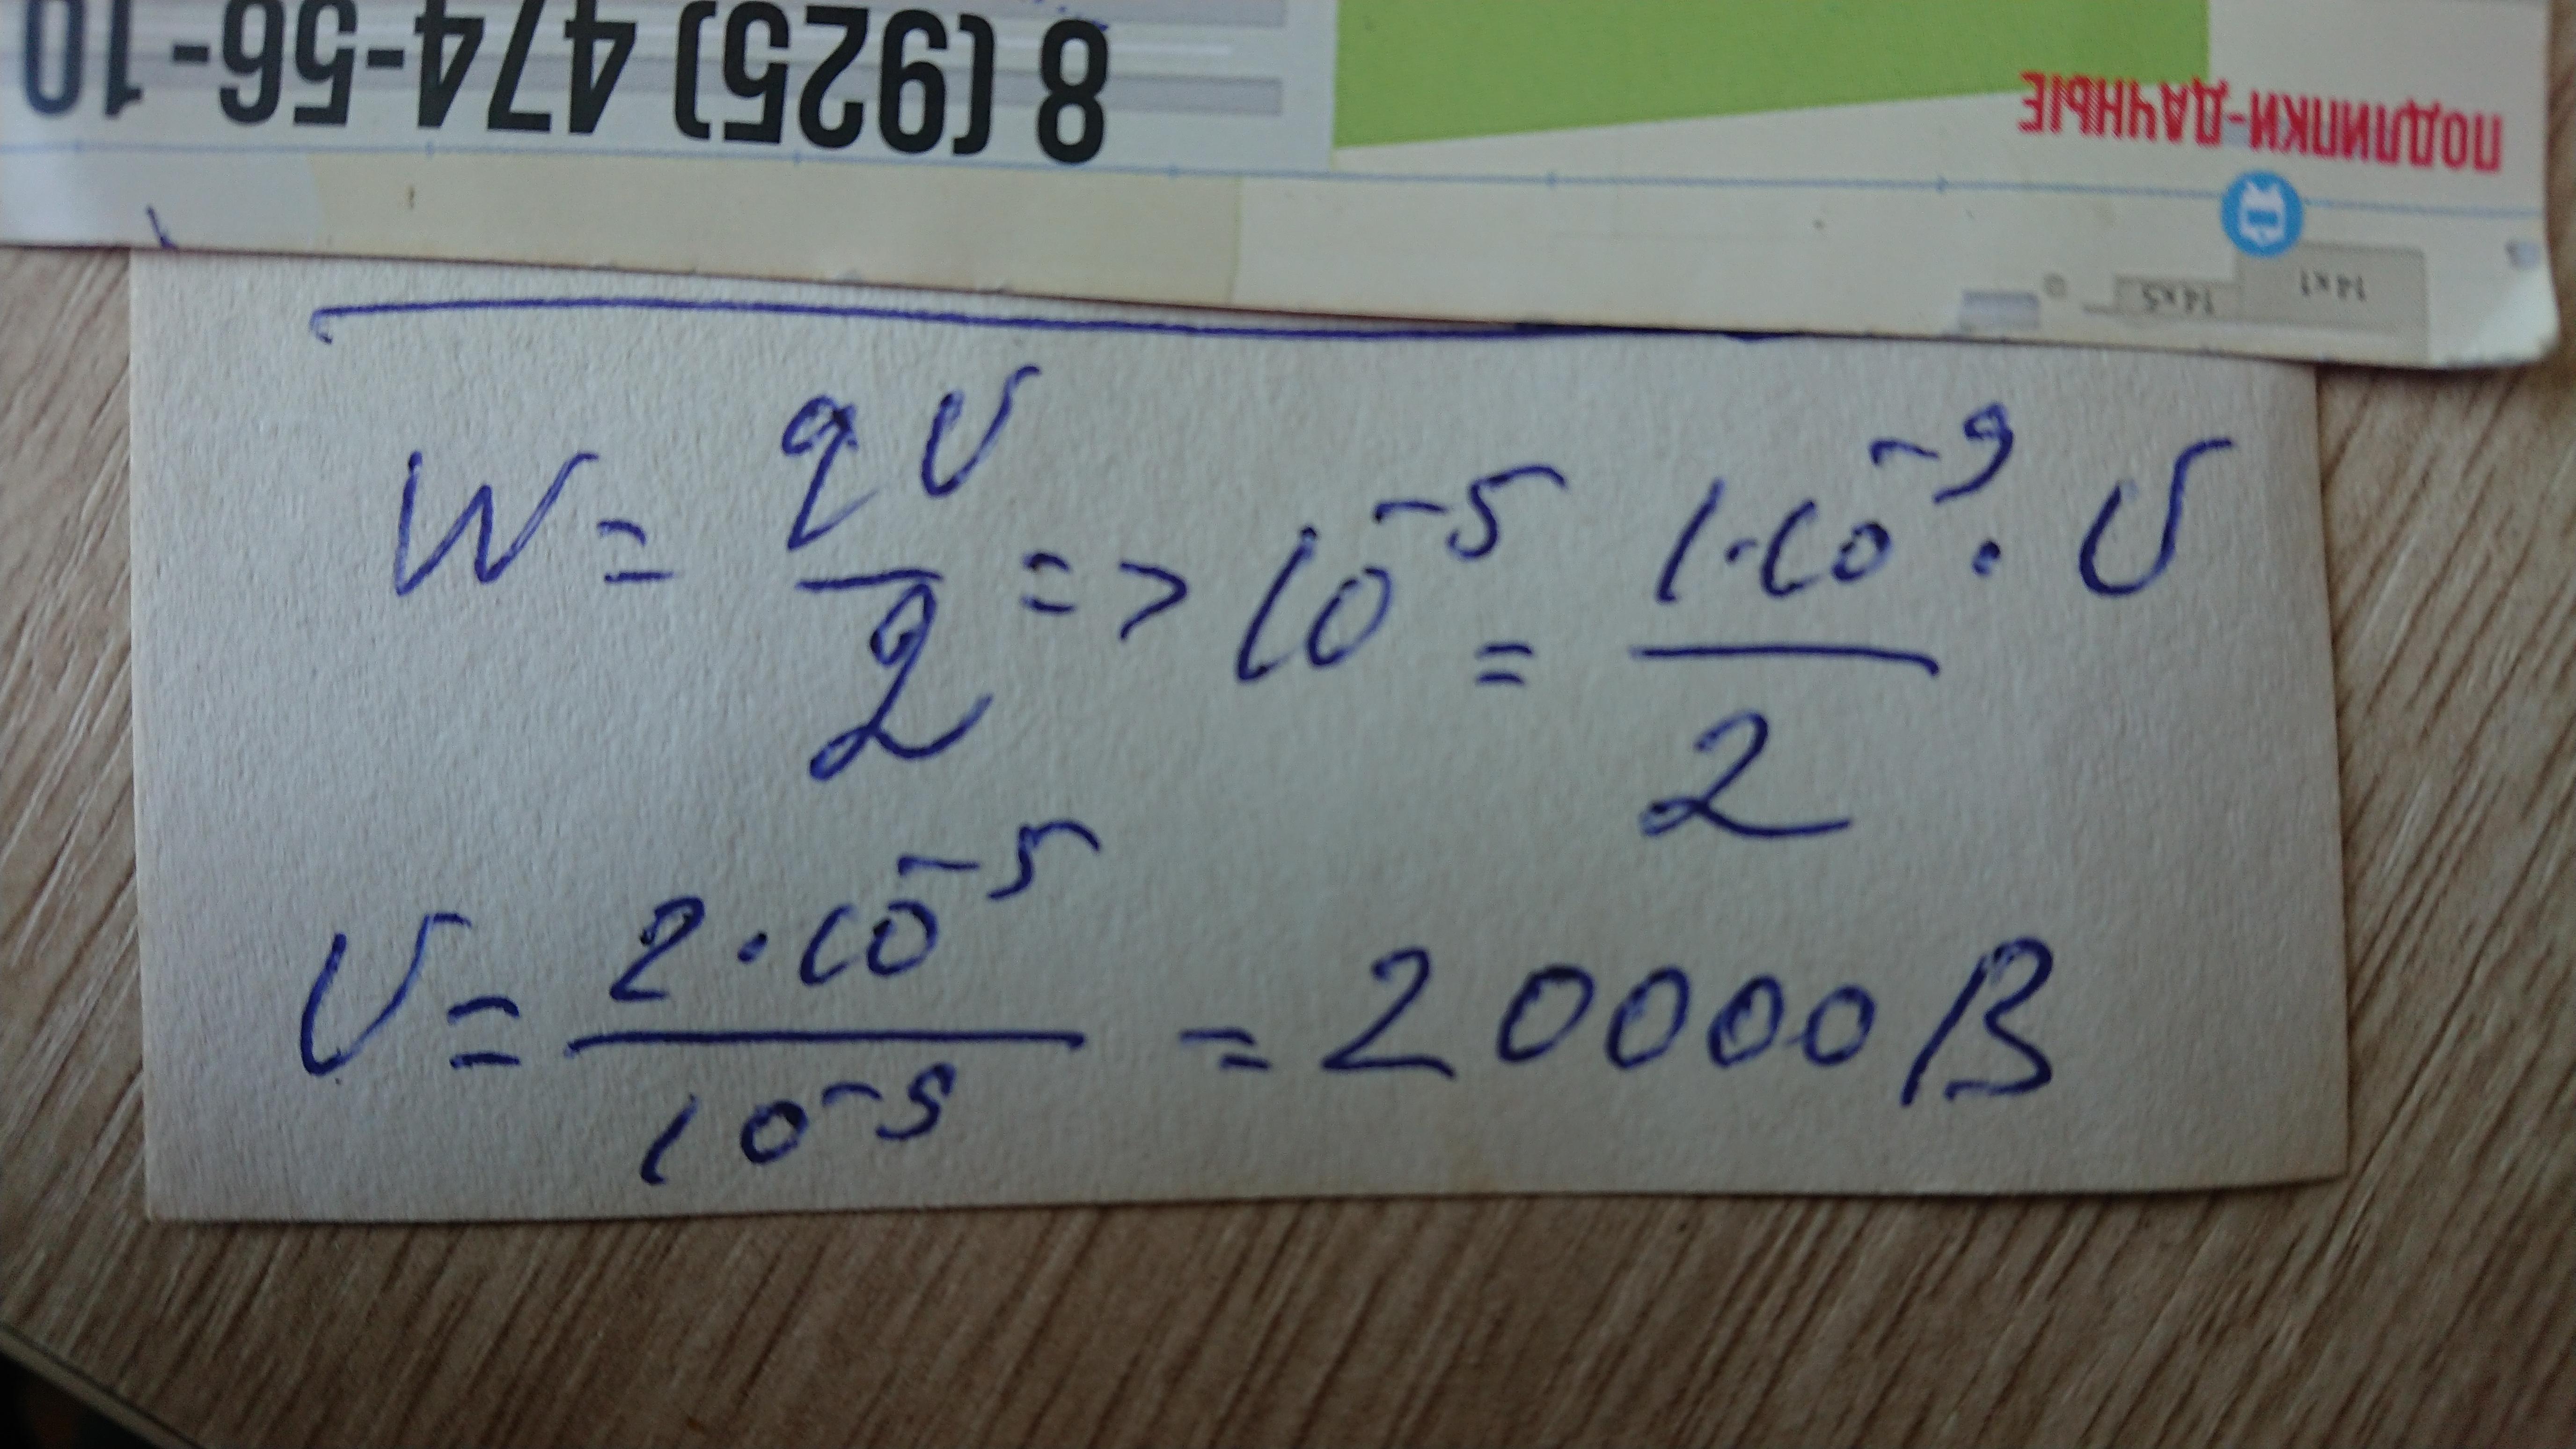 8 (925) 474-56-10
ПОДЛИПКИ-ДАЧНЫЕ
14x1
14x5
W = qU/2 => 10^-5 = 1·10^-9 · U/2
U = 2·10^-5/10^-9 = 20000 В